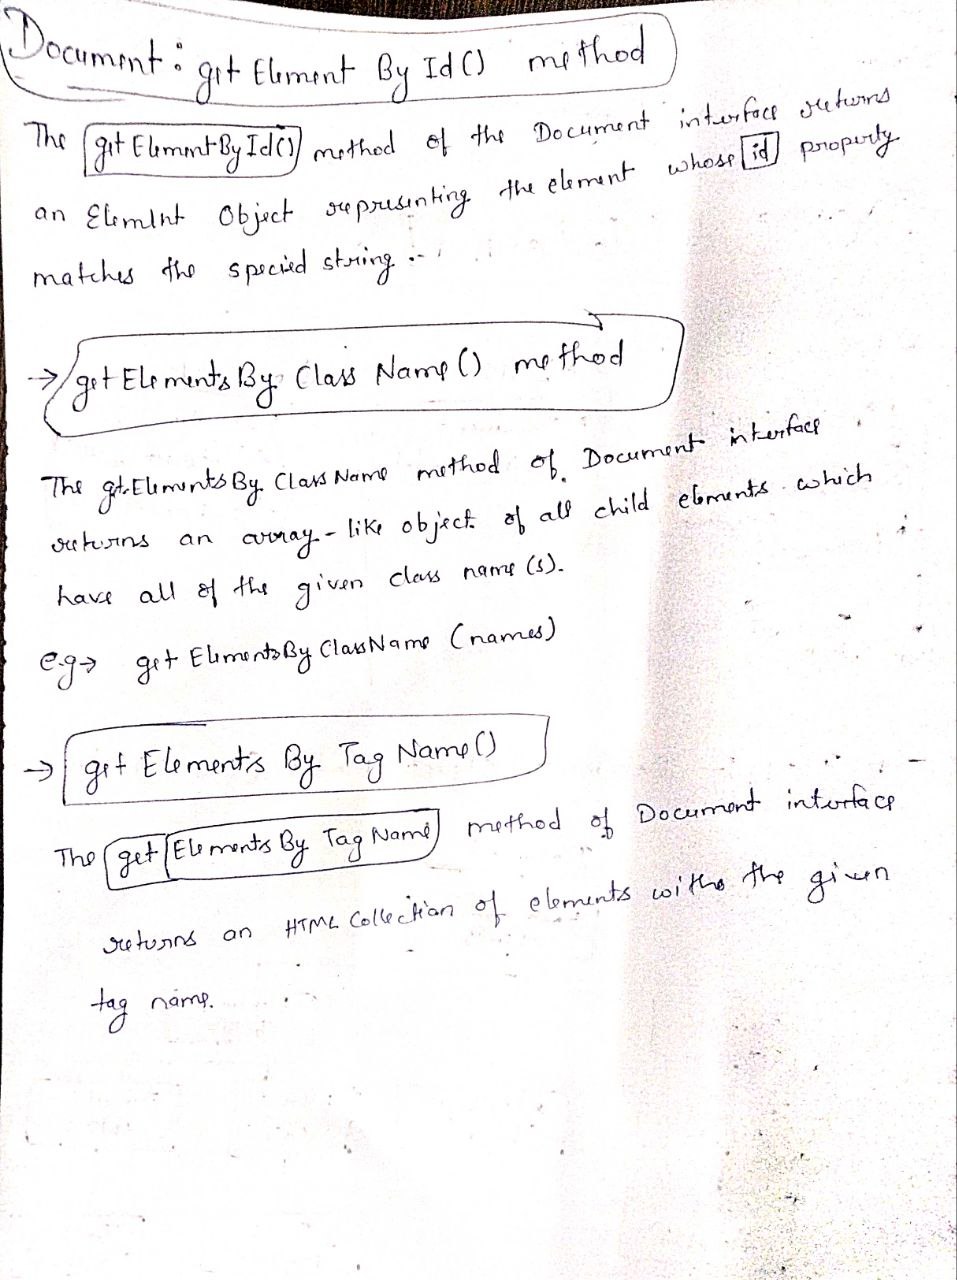 Document: get Element By Id() method
The getElementById() method of the Document interface returns
an Element Object representing the element whose id property
matches the specied string.
→ getElementsBy Class Name() method
The getElementsBy Class Name method of Document interface
returns an array-like object of all child elements which
have all of the given class name(s).
e.g→ get ElementsBy ClassName (names)
→ get Elements By Tag Name()
The get Elements By Tag Name method of Document interface
returns an HTML Collection of elements withe the given
tag name.